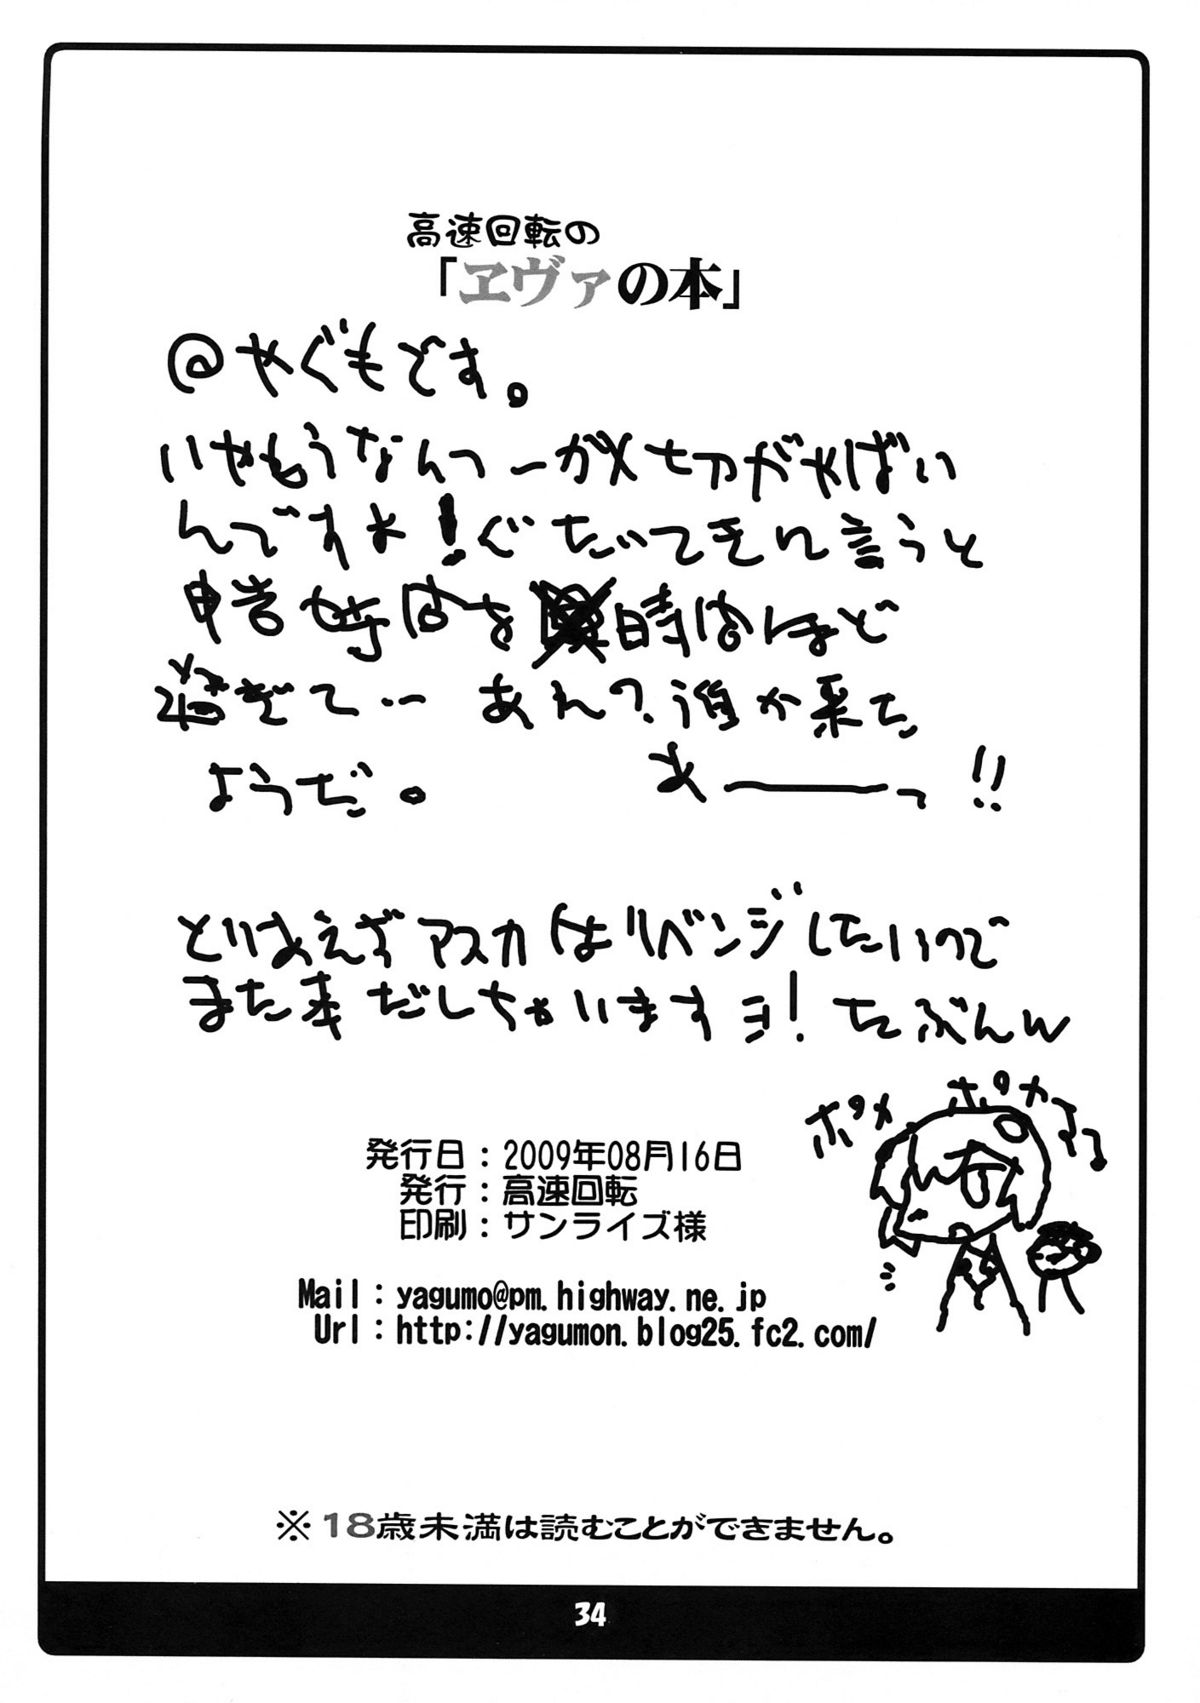 高速回転の
「ヱヴァの本」
@やぐもです。
いやもうなんつーか〆切がやばい
んですよ!ぐたいてきに言うと
申告時間を 時間ほど
過ぎて… あれ?誰か来た
ようだ。 あ──っ!!
とりあえずアスカはリベンジしたいので
また本だしちゃいますョ!たぶんw
ポカ ポカ
発行日:2009年08月16日
発行:高速回転
印刷:サンライズ様
Mail:yagumo@pm.highway.ne.jp
Url:http://yagumon.blog25.fc2.com/
※18歳未満は読むことができません。
34